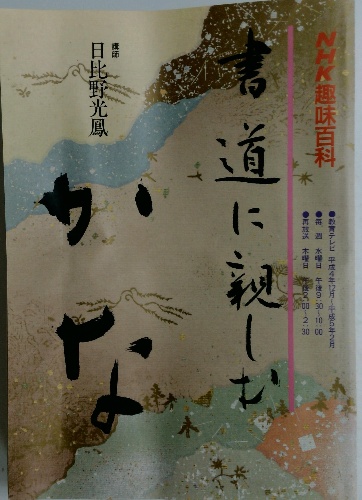 NHK趣味百科
●教育テレビ 平成4年12月～平成5年2月
●毎週 水曜日 午後9:30～10:00
●再放送 木曜日 午後2:00～2:30
書道に親しむ
かな
講師
日比野光鳳